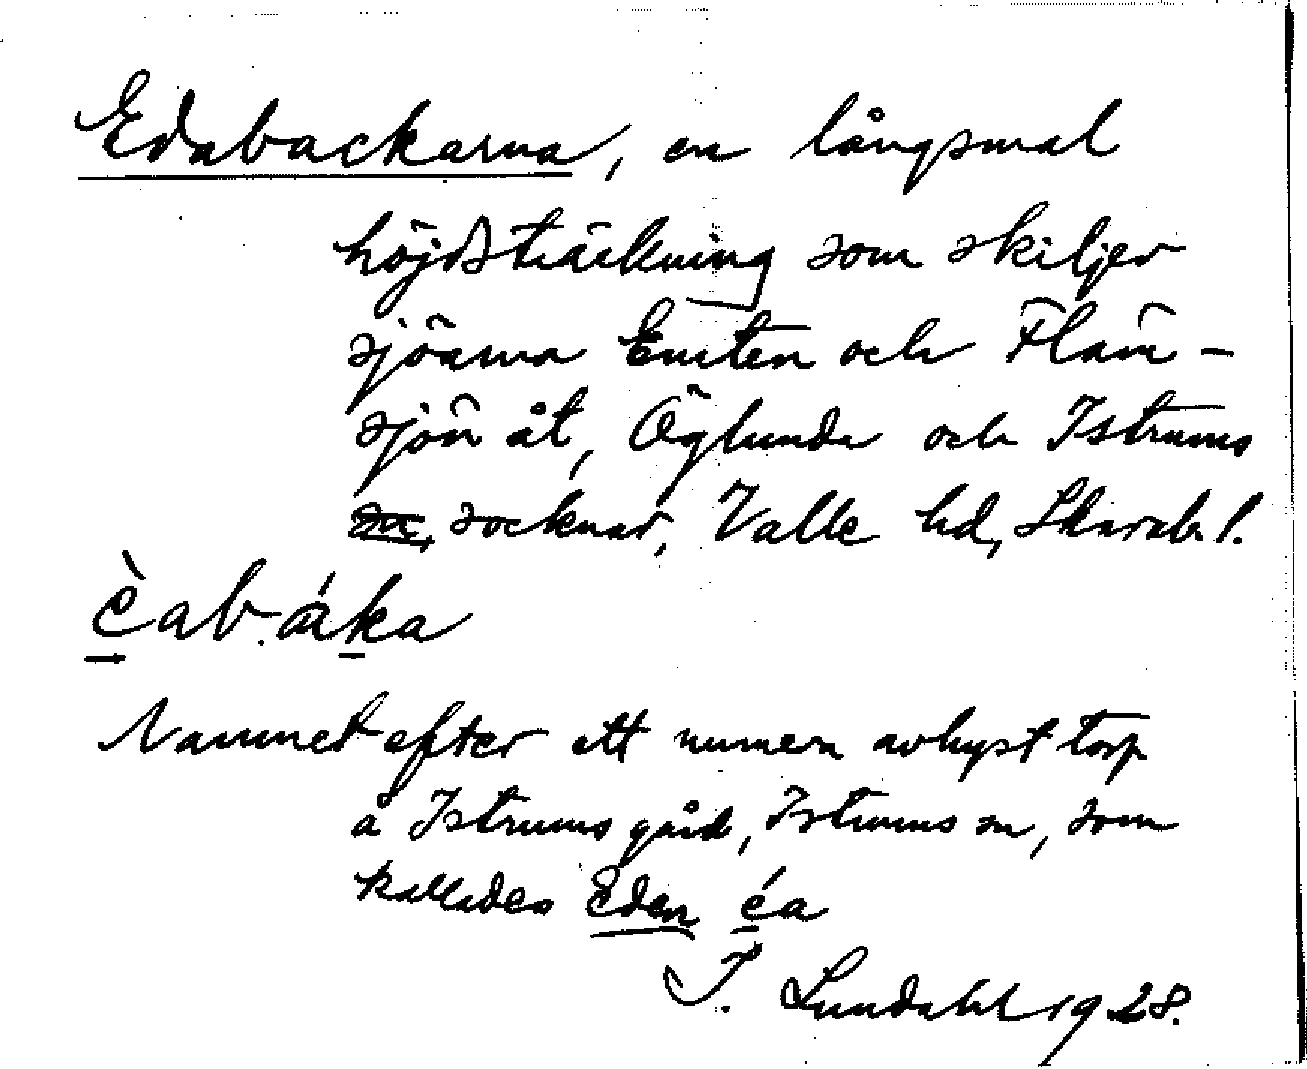 Edabackarna, en långsmal
höjdsträckning som skiljer
sjöarna Emten och Fläm-
sjön åt, Öglunda och Istrums
socknar, Valle hd, Skarab. l.
èab.áka
Namnet efter ett numera avhyst torp
å Istrums gård, Istrums sn, som
kallades Eden éa
I. Lundahl 1928.